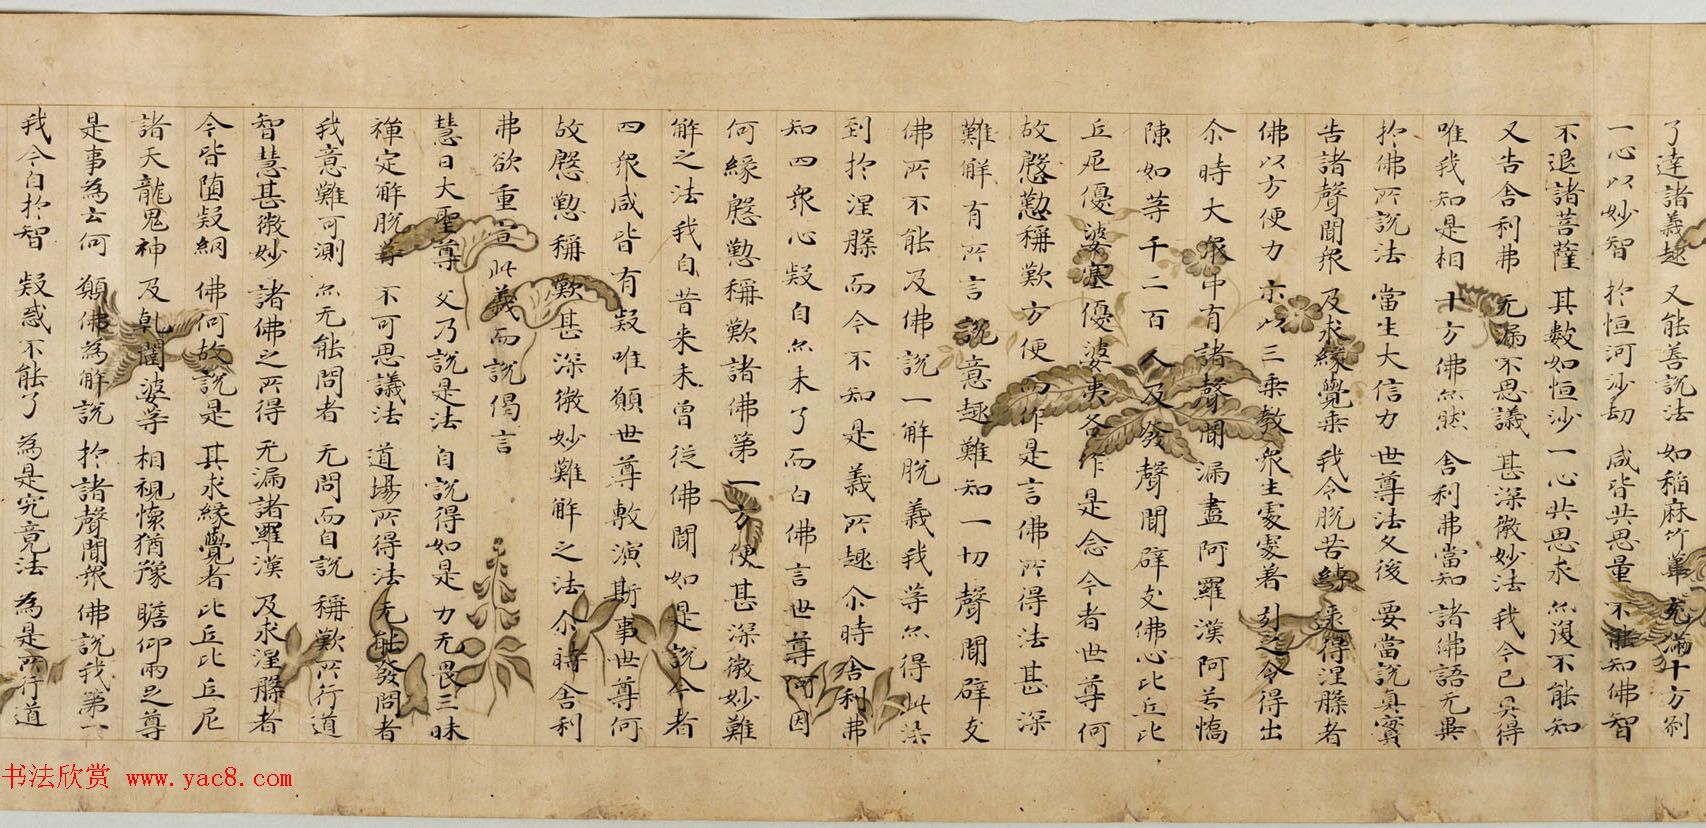 了達諸義趣 又能善說法 如稻麻竹葦 充滿十方剎
一心以妙智 於恒河沙劫 咸皆共思量 不能知佛智
不退諸菩薩 其數如恒沙 一心共思求 亦復不能知
又告舍利弗 无漏不思議 甚深微妙法 我今已具得
唯我知是相 十方佛亦然 舍利弗當知 諸佛語无異
於佛所說法 當生大信力 世尊法久後 要當說真實
告諸聲聞眾 及求緣覺乘 我令脫苦縛 逮得涅槃者
佛以方便力 示以三乘教 眾生處處著 引之令得出
尒時大眾中有諸聲聞漏盡阿羅漢阿若憍
陳如等千二百人及發聲聞辟支佛心比丘比
丘尼優婆塞優婆夷各作是念今者世尊何
故慇懃稱歎方便而作是言佛所得法甚深
難解有所言說意趣難知一切聲聞辟支
佛所不能及佛說一解脫義我等亦得此法
到於涅槃而今不知是義所趣尒時舍利弗
知四眾心疑自亦未了而白佛言世尊何因
何緣慇懃稱歎諸佛第一方便甚深微妙難
解之法我自昔來未曾從佛聞如是說今者
四眾咸皆有疑唯願世尊敷演斯事世尊何
故慇懃稱歎甚深微妙難解之法尒時舍利
弗欲重宣此義而說偈言
慧日大聖尊 久乃說是法 自說得如是 力无畏三昧
禪定解脫等 不可思議法 道場所得法 无能發問者
我意難可測 亦无能問者 无問而自說 稱歎所行道
智慧甚微妙 諸佛之所得 无漏諸羅漢 及求涅槃者
今皆墮疑網 佛何故說是 其求緣覺者 比丘比丘尼
諸天龍鬼神 及乾闥婆等 相視懷猶豫 瞻仰兩足尊
是事為云何 願佛為解說 於諸聲聞眾 佛說我第一
我今自於智 疑惑不能了 為是究竟法 為是所行道
书法欣赏 www.yac8.com